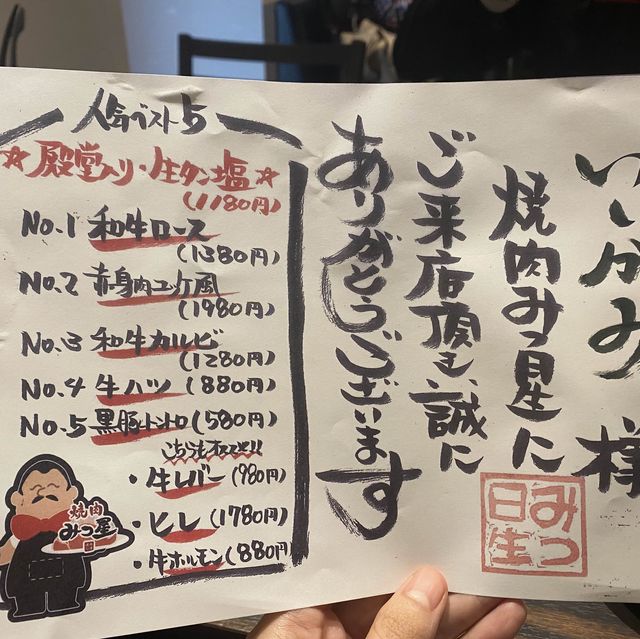 いがみ様
焼肉みつ星に
ご来店頂き、誠に
ありがとうございます
みつ
日生
人気ベスト5
☆殿堂入り・生タン塩☆
(1180円)
No.1 和牛ロース
(1380円)
No.2 赤身肉ユッケ風
(1980円)
No.3 和牛カルビ
(1280円)
No.4 牛ハツ (880円)
No.5 黒豚トントロ (580円)
こちらもオススメ!!
・牛レバー (980円)
・ヒレ (1780円)
・牛ホルモン (880円)
焼肉
みつ星